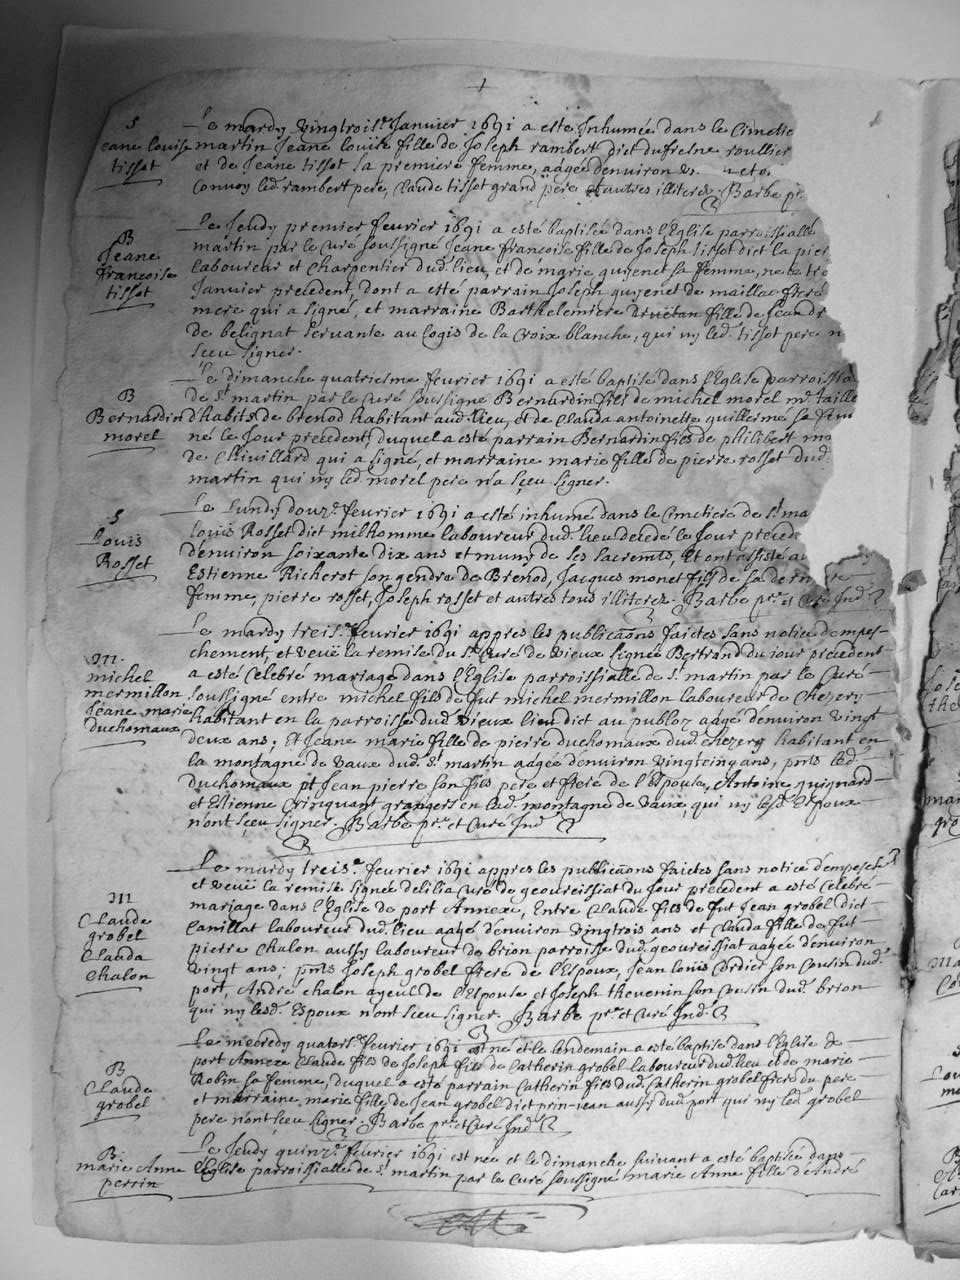 1
S
Jeane Louise
tissot
Le mardy Vingtrois.e Janvier 1691 a esté Inhumée dans le Cimetie
martin Jeane louise fille de Joseph rambert dict dufresne roullier
et de Jeane tissot sa premiere femme, aagée denviron
Convoy led. rambert pere, Claude tissot grand pere et autres illiterez. Barbe pr.
B
Jeane
francoise
tissot
Le Jeudy premier fevrier 1691 a esté baptisée dans l'Eglise parroissialle
martin par le Curé soussigné Jeane francoise fille de Joseph tissot dict la pier
laboureur et Charpentier dud. lieu, et de marie guyenet sa femme, née le tre
Janvier precedent, dont a esté parrain Joseph guyenet de maillac frere
mere qui a signé, et marraine Barthelemiere fille de
de belignat servante au logis de la Croix blanche, qui ny led. tissot pere n
sceu signer.
B
Bernardin
morel
Le dimanche quatriesme fevrier 1691 a esté baptisé dans l'Eglise parroissia
de St. martin par le Curé soussigné Bernardin fils de michel morel me. taille
d'habits de brenod habitant aud. lieu, et de Clauda antoinette guillerme sa fem
né le Jour precedent, duquel a esté parrain Bernardin fils de philibert mo
de Chivillard qui a signé, et marraine marie fille de pierre rosset dud.
martin qui ny led. morel pere n'a sceu signer.
S
Louis
Rosset
Le Lundy douz.e fevrier 1691 a esté inhumé dans le Cimetiere de St. ma
louis Rosset dict milhomme laboureur dud. lieu decedé le Jour preced
d'environ soixante dix ans et muny de ses sacremts, Et ont assisté au
Estienne Richerot son gendre de Brenod, Jacques monet fils de sa derniere
femme, pierre rosset, Joseph rosset et autres tous illiterez. Barbe pr. et Curé Ind.
M.
michel
mermillon
Jeane marie
duchomaux
Le mardy treis.e fevrier 1691 appres les publicaons faictes sans notice d'empes-
chement, et veue la remise du Sr. Curé de Vieux signée Bertrand du jour precedent
a esté Celebré mariage dans l'Eglise parroissialle de St. martin par le Curé
soussigné entre michel fils de fut michel mermillon laboureur de Chezery
habitant en la parroisse dud. Vieux lieu dict au publoz aagé denviron vingt
deux ans; Et Jeane marie fille de pierre duchomaux dud. Chezery habitant en
la montagne de Vaux dud. St. martin aagée denviron vingtcinq ans, pnts led.
duchomaux et Jean pierre son fils pere et frere de l'Espouse, Antoine guignard
et Estienne Crinquant grangers en lad. montagne de Vaux, qui ny lesd. Espoux
n'ont sceu signer. Barbe pr. et Curé Ind.
M
Claude
grobel
Clauda
Chalon
Le mardy treis.e fevrier 1691 appres les publicaons faictes sans notice d'empesch.
et veue la remise signée Delilia Curé de geoureissiat du Jour precedent a esté Celebré
mariage dans l'Eglise de port Annexe, Entre Claude fils de fut Jean grobel dict
Canillat laboureur dud. lieu aagé denviron vingtrois ans et Clauda fille de fut
pierre Chalon aussy laboureur de brion parroisse dud. geoureissiat aagée denviron
vingt ans; pnts Joseph grobel frere de l'Espoux, Jean louis Cordier son Cousin dud.
port, André Chalon ayeul de l'Espouse et Joseph thevenin son Cousin dud. brion
qui ny lesd. Espoux n'ont sceu signer. Barbe pr. et Curé Ind.
B
Claude
grobel
Le mecredy quators.e fevrier 1691 est né et le lendemain a esté baptisé dans l'Eglise de
port Annexe Claude fils de Joseph fils de Catherin grobel laboureur dud. lieu et de marie
Robin sa femme, duquel a esté parrain Catherin fils dud. Catherin grobel frere du pere
et marraine marie fille de Jean grobel dict prin-jean aussy dud. port qui ny led. grobel
pere n'ont sceu signer. Barbe pr. et Curé Ind.
B.
marie Anne
perrin
Le Jeudy quinz.e fevrier 1691 est née et le dimanche suivant a esté baptisée dans
l'Eglise parroissialle de St. martin par le Curé soussigné marie Anne fille d'André